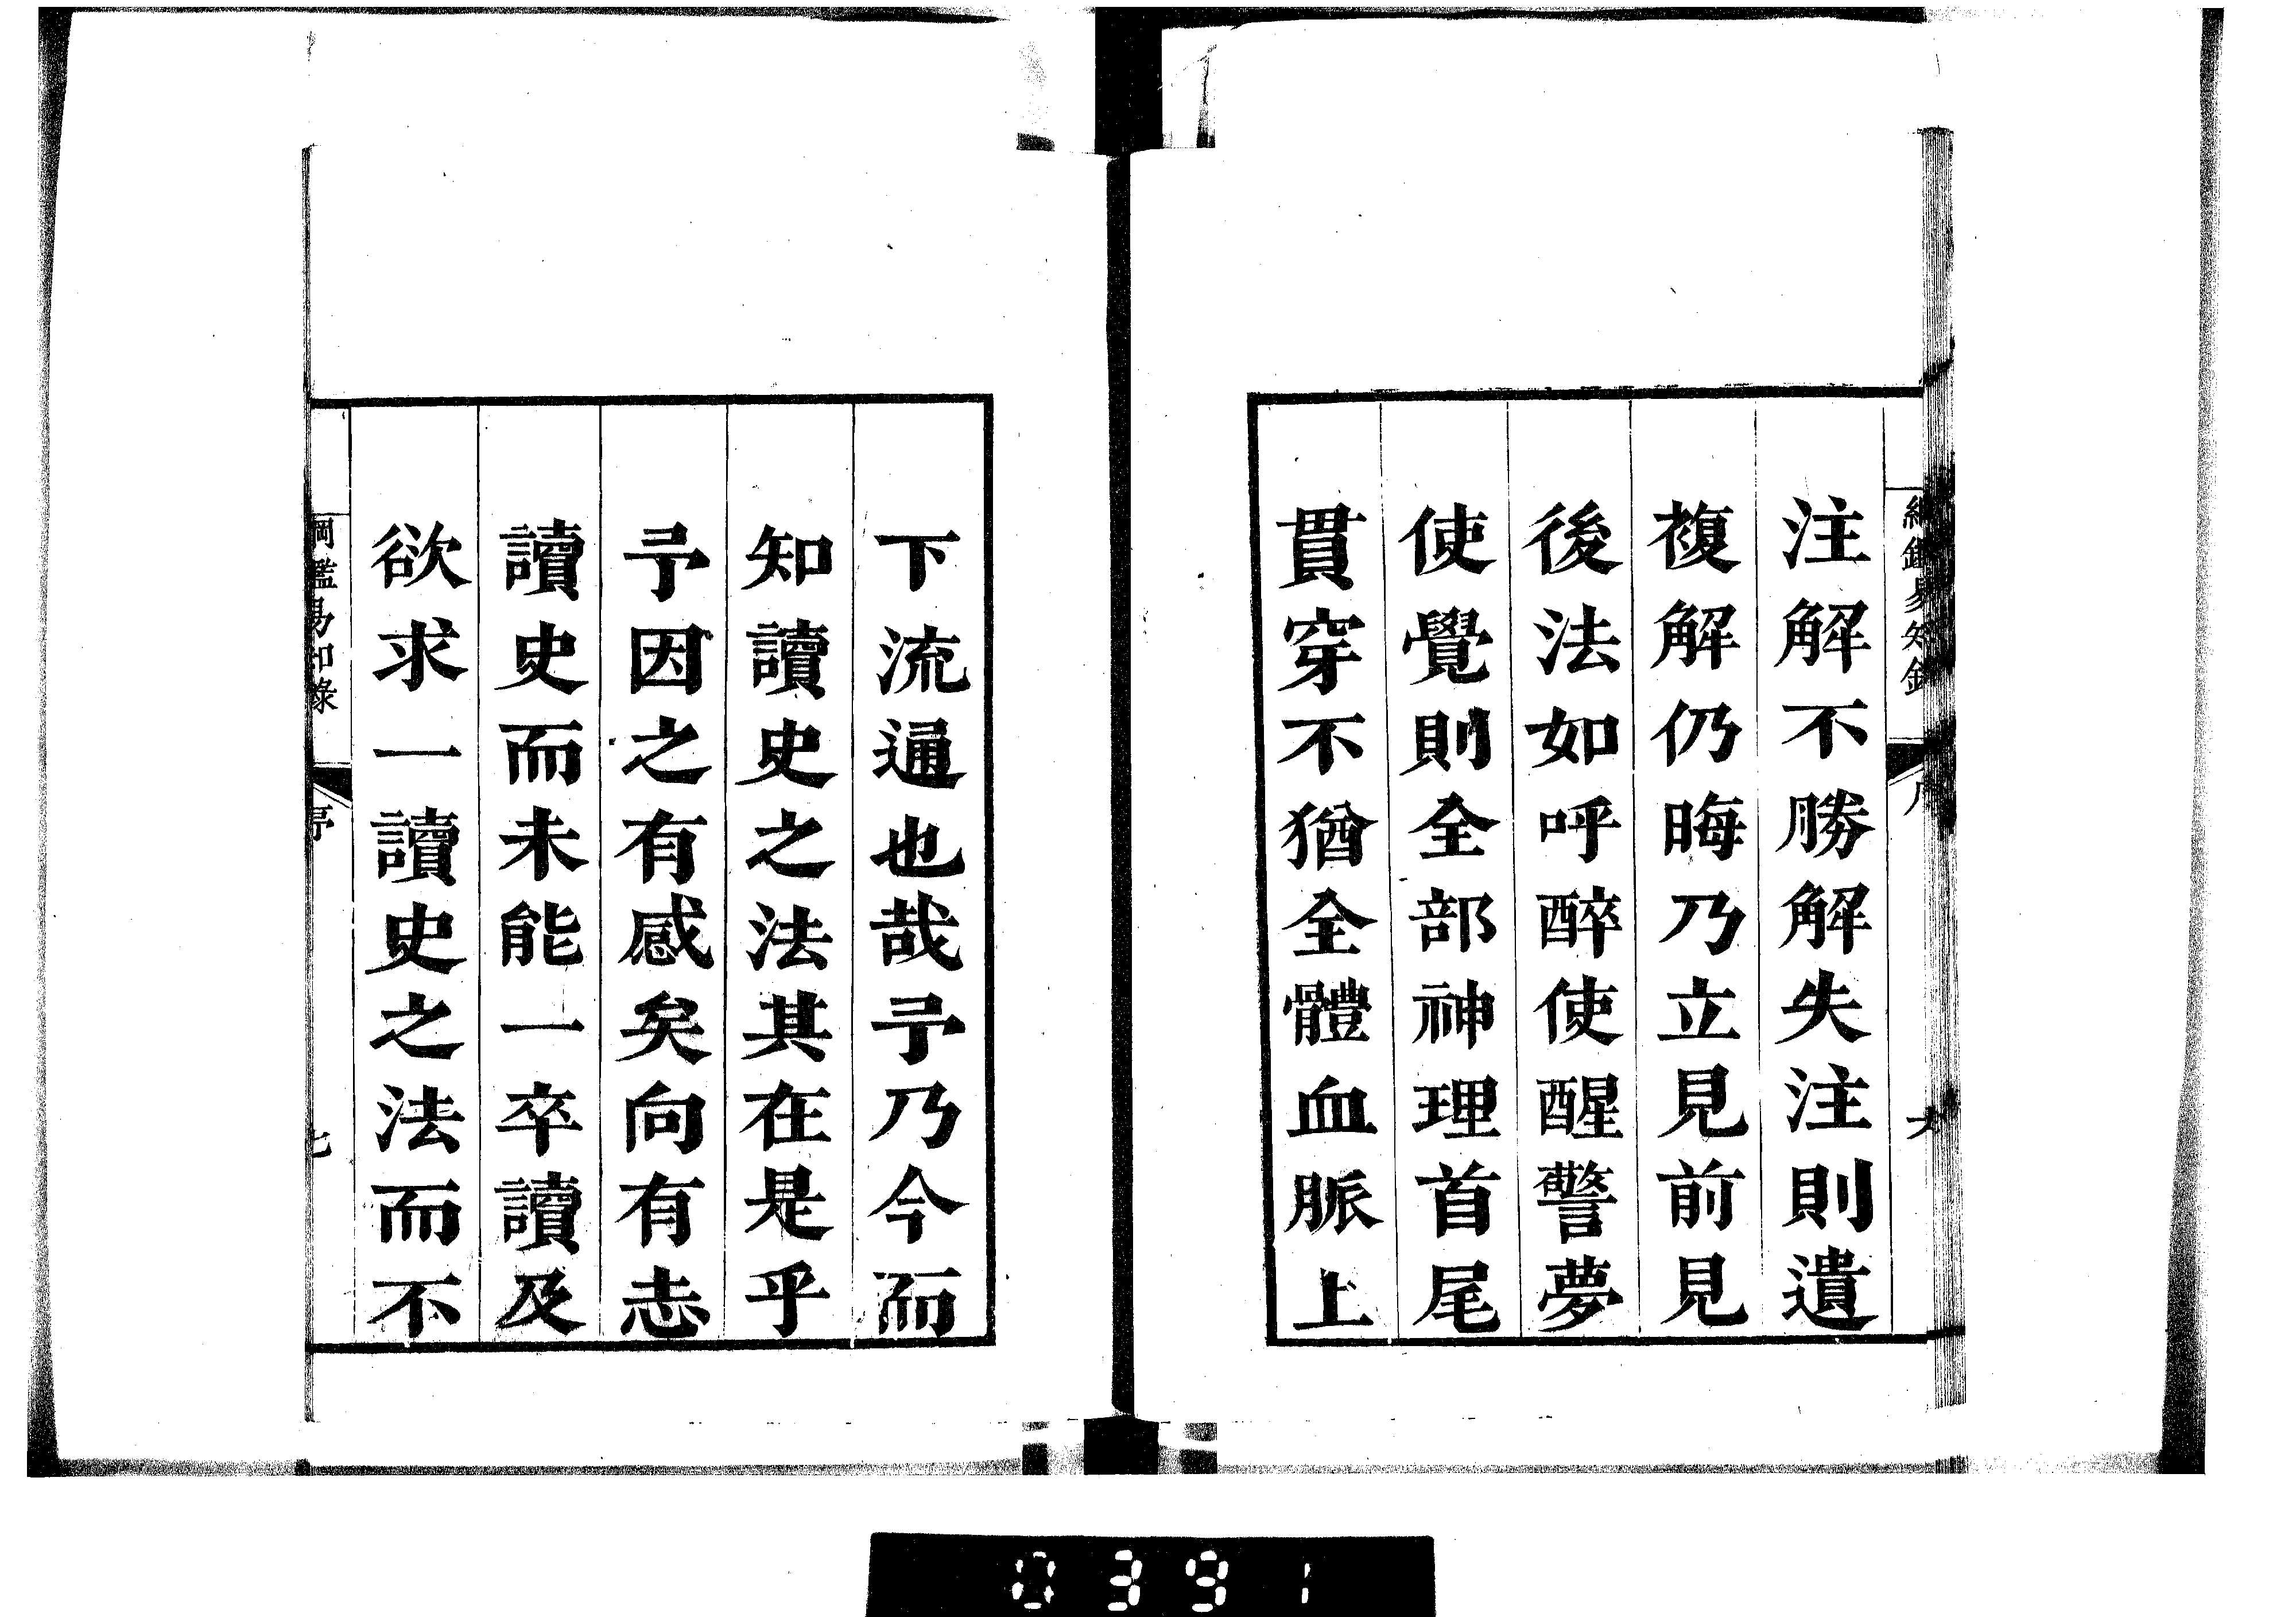 綱鑑易知錄
序
六
注解不勝解失注則遺
複解仍晦乃立見前見
後法如呼醉使醒警夢
使覺則全部神理首尾
貫穿不猶全體血脈上
下流通也哉予乃今而
知讀史之法其在是乎
予因之有感矣向有志
讀史而未能一卒讀及
欲求一讀史之法而不
綱鑑易知錄
序
七
0391